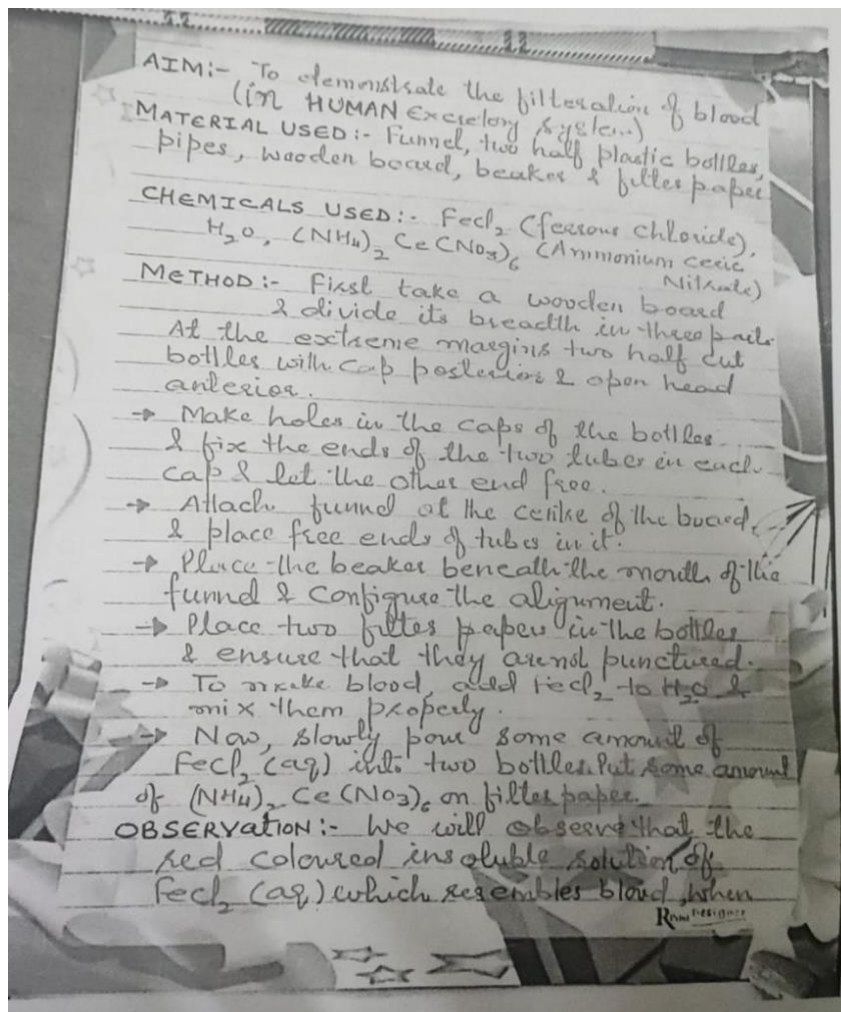 AIM:- To demonstrate the filteration of blood
(in HUMAN Excretory system)
MATERIAL USED:- Funnel, two half plastic bottles,
pipes, wooden board, beaker & filter paper
CHEMICALS USED:- Fecl2 (ferrous chloride),
H2O, (NH4)2 Ce(NO3)6 (Ammonium ceric
Nitrate)
METHOD:- First take a wooden board
& divide its breadth in three parts.
At the extreme margins two half cut
bottles with cap posterior & open head
anterior.
→ Make holes in the caps of the bottles
& fix the ends of the two tubes in each
cap & let the other end free.
→ Attach funnel at the centre of the board,
& place free ends of tubes in it.
→ Place the beaker beneath the mouth of the
funnel & configure the alignment.
→ Place two filter papers in the bottles
& ensure that they are not punctured.
→ To make blood, add Fecl2 to H2O &
mix them properly.
→ Now, slowly pour some amount of
Fecl2 (aq) into two bottles. Put some amount
of (NH4)2 Ce(NO3)6 on filter paper.
OBSERVATION:- We will observe that the
red coloured insoluble solution of
Fecl2 (aq) which resembles blood, when
DESIGNER